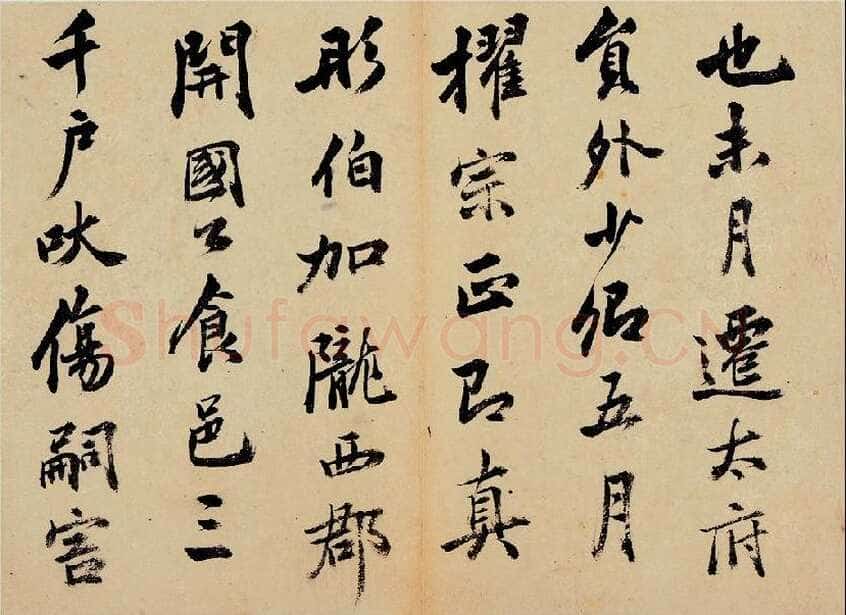 也未月遷太府
員外少卿五月
擢宗正即真
彤伯加隴西郡
開國公食邑三
千戶吠傷嗣害
Shufawang.CN